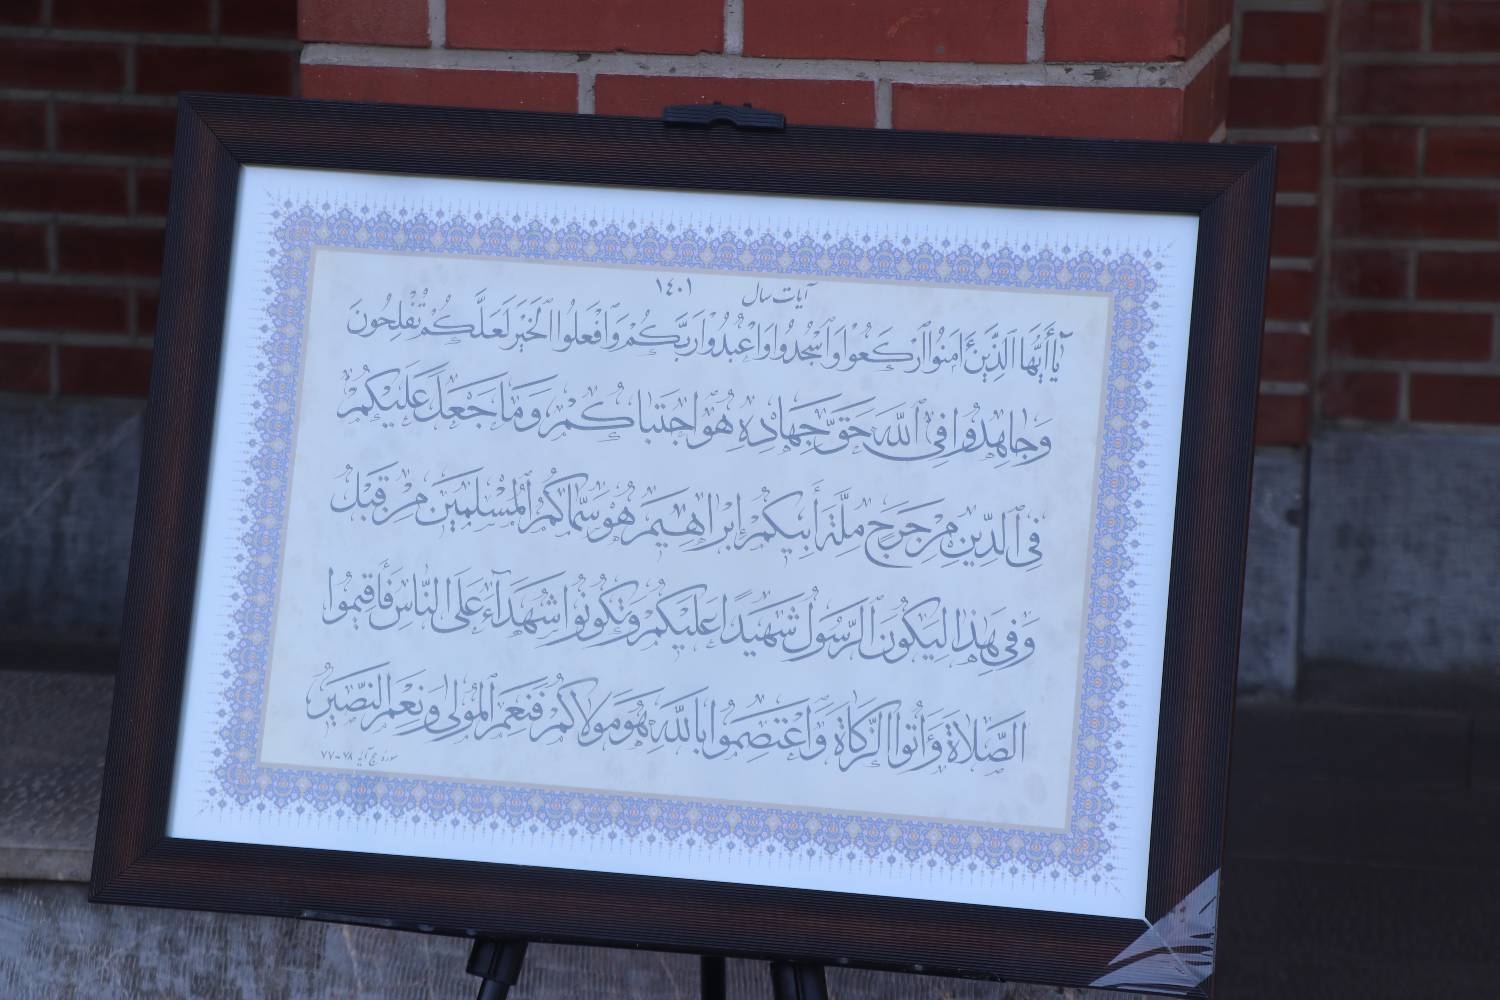 آیات سال ۱۴۰۱
يَٰٓأَيُّهَا ٱلَّذِينَ ءَامَنُوا ٱرْكَعُوا وَٱسْجُدُوا وَٱعْبُدُوا رَبَّكُمْ وَٱفْعَلُوا ٱلْخَيْرَ لَعَلَّكُمْ تُفْلِحُونَ
وَجَاهِدُوا فِي ٱللَّهِ حَقَّ جِهَادِهِ هُوَ اجْتَبَاكُمْ وَمَا جَعَلَ عَلَيْكُمْ
فِي ٱلدِّينِ مِنْ حَرَجٍ مِلَّةَ أَبِيكُمْ إِبْرَاهِيمَ هُوَ سَمَّاكُمُ ٱلْمُسْلِمِينَ مِنْ قَبْلُ
وَفِي هَٰذَا لِيَكُونَ ٱلرَّسُولُ شَهِيدًا عَلَيْكُمْ وَتَكُونُوا شُهَدَآءَ عَلَى النَّاسِ فَأَقِيمُوا
الصَّلَاةَ وَءَاتُوا ٱلزَّكَاةَ وَٱعْتَصِمُوا بِاللَّهِ هُوَ مَوْلَاكُمْ فَنِعْمَ ٱلْمَوْلَىٰ وَنِعْمَ النَّصِيرُ
سوره حج آیه ۷۸-۷۷